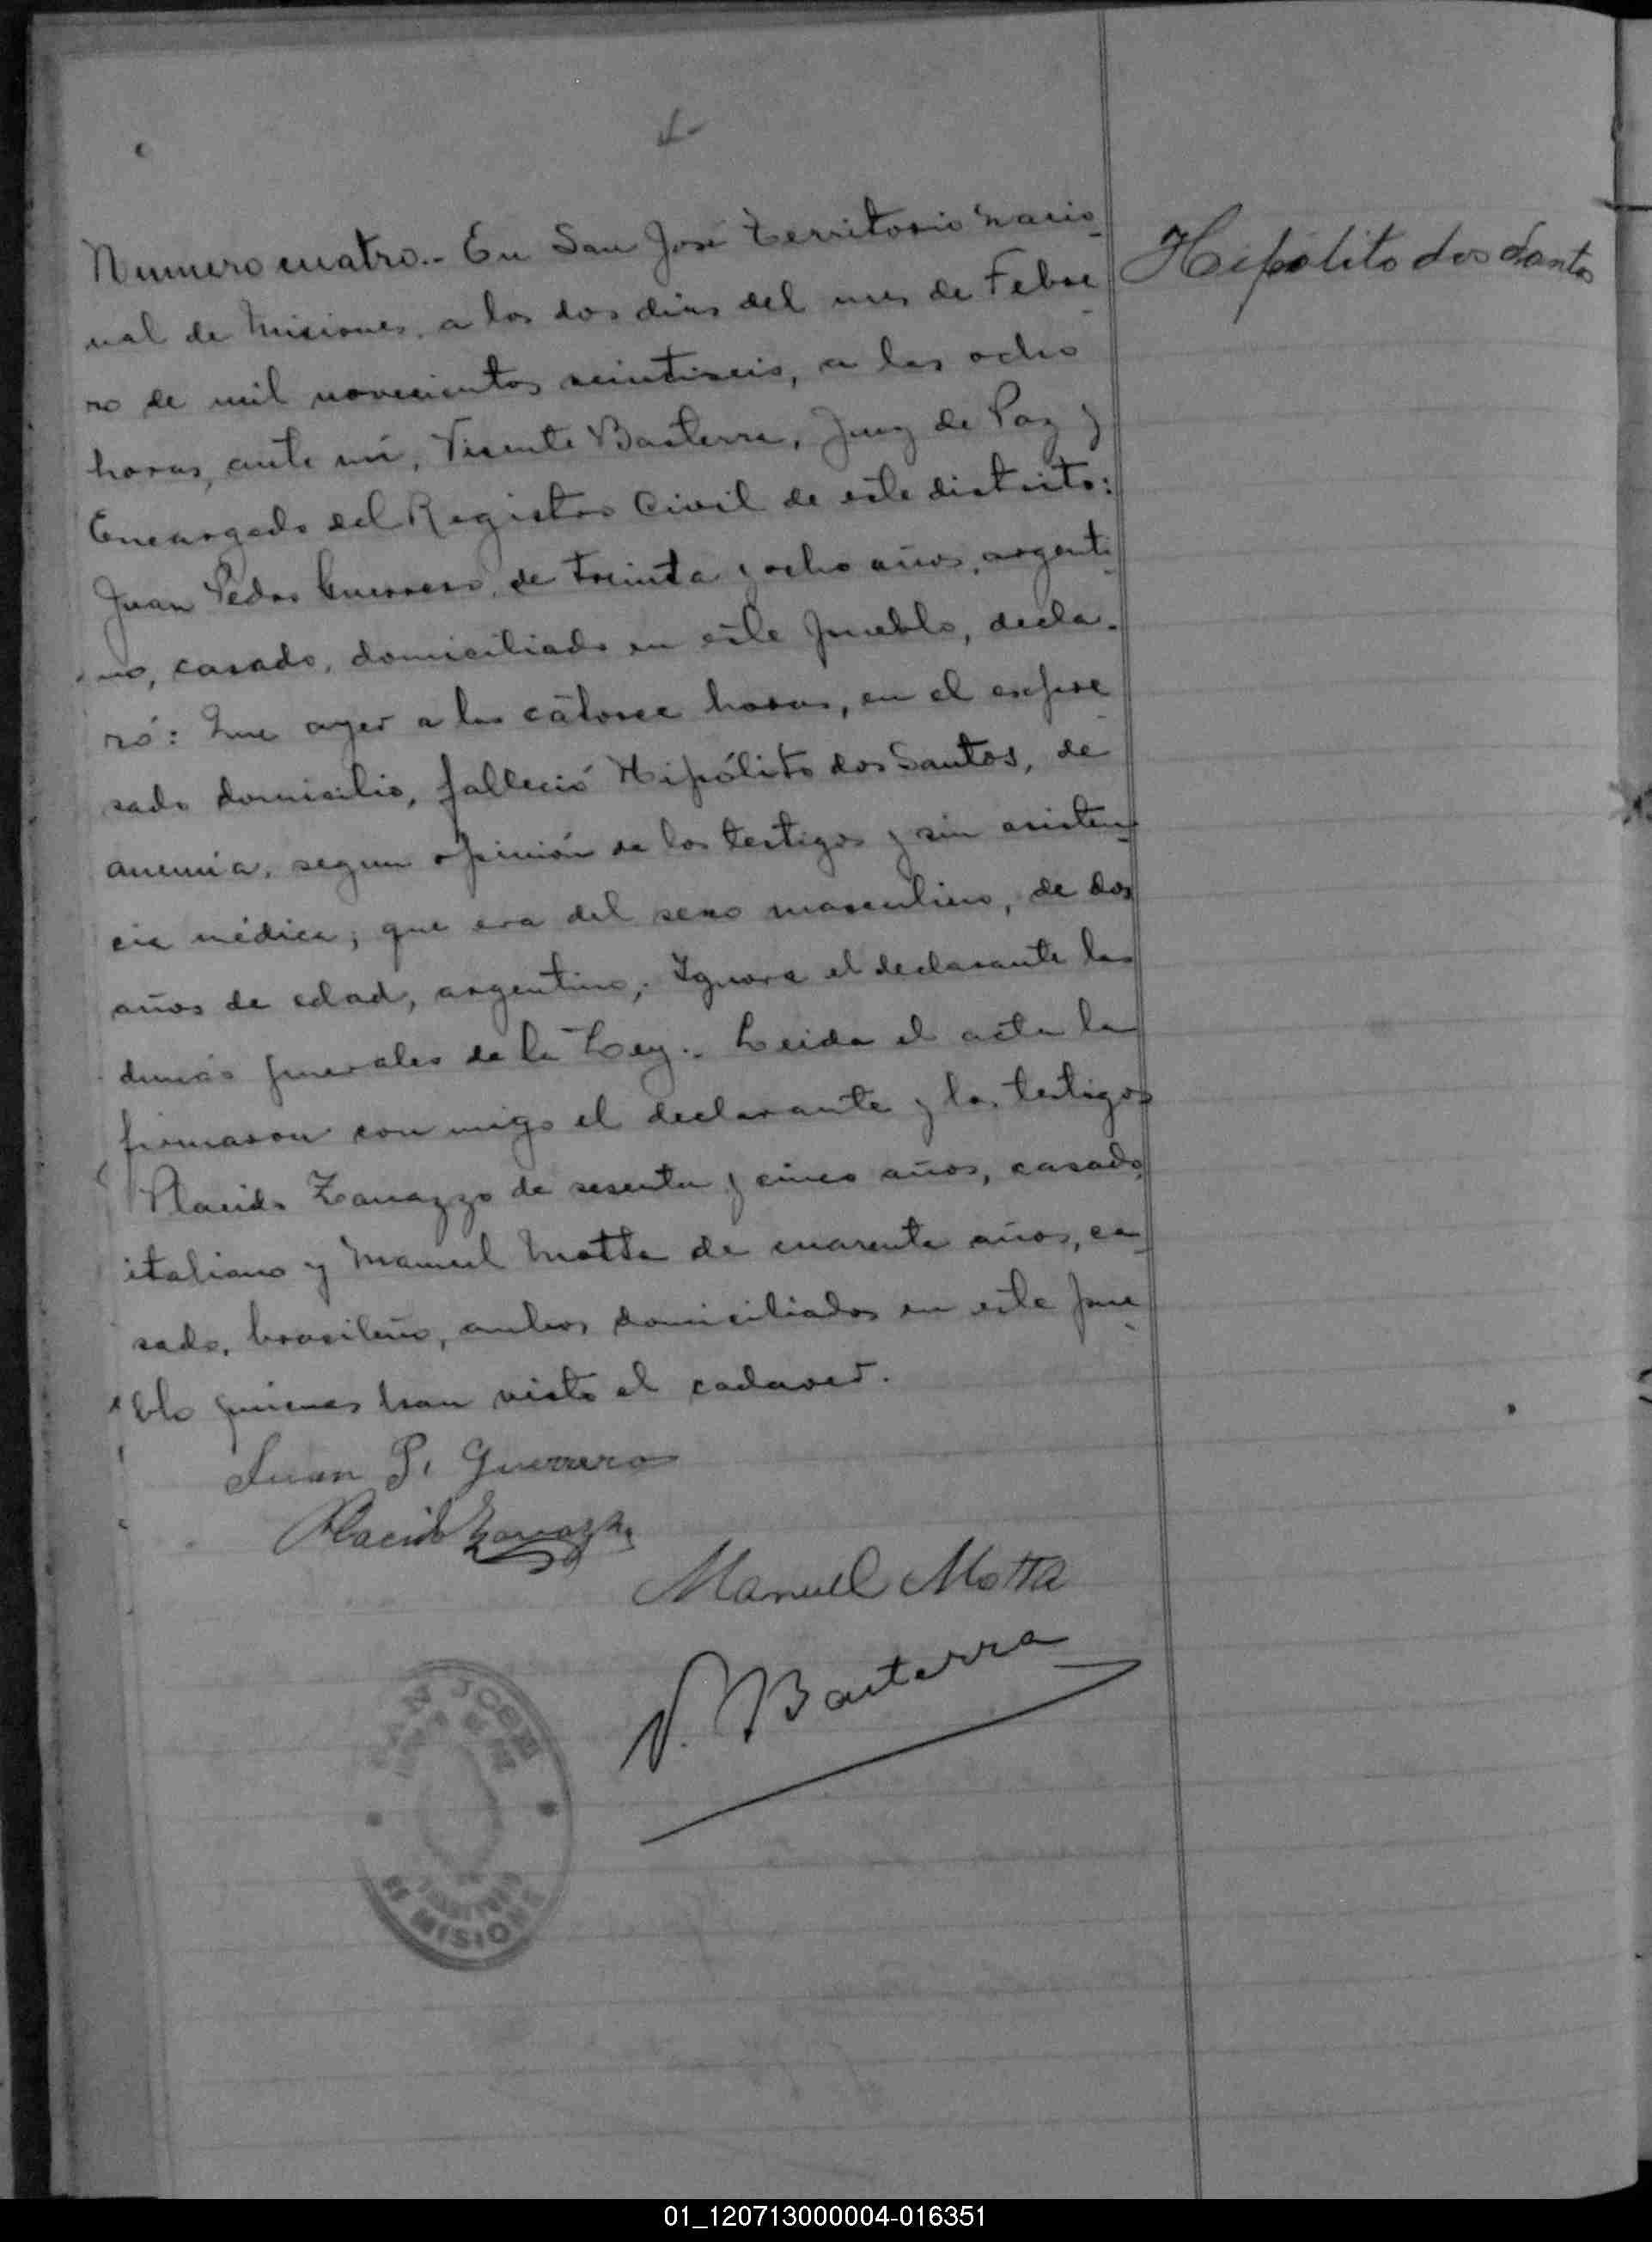 4-
Numero cuatro.- En San José Territorio nacio-
nal de Misiones, a los dos dias del mes de Febre-
ro de mil novecientos veintiseis, a las ocho
horas, ante mi, Vicente Basterra, Juez de Paz y
Encargado del Registro Civil de este distrito:
Juan Pedro Guerrero, de treinta y ocho años, argenti-
no, casado, domiciliado en este pueblo, decla-
ró: Que ayer a las catorce horas, en el expre-
sado domicilio, falleció Hipólito dos Santos, de
anemia, segun opinión de los testigos y sin asisten-
cia médica; que era del sexo masculino, de dos
años de edad, argentino; Ignora el declarante las
demás generales de la Ley.- Leida el acta la
firmaron con migo el declarante y los testigos
Placido Zanazzo de sesenta y cinco años, casado,
italiano y Manuel Motta de cuarenta años, ca-
sado, brasileño, ambos domiciliados en este pue-
blo quienes han visto el cadaver.
Hipólito dos Santos
Juan P. Guerrero
Placido Zanazzo
Manuel Motta
V. Basterra
SAN JOSE
MISIONES
01_120713000004-016351